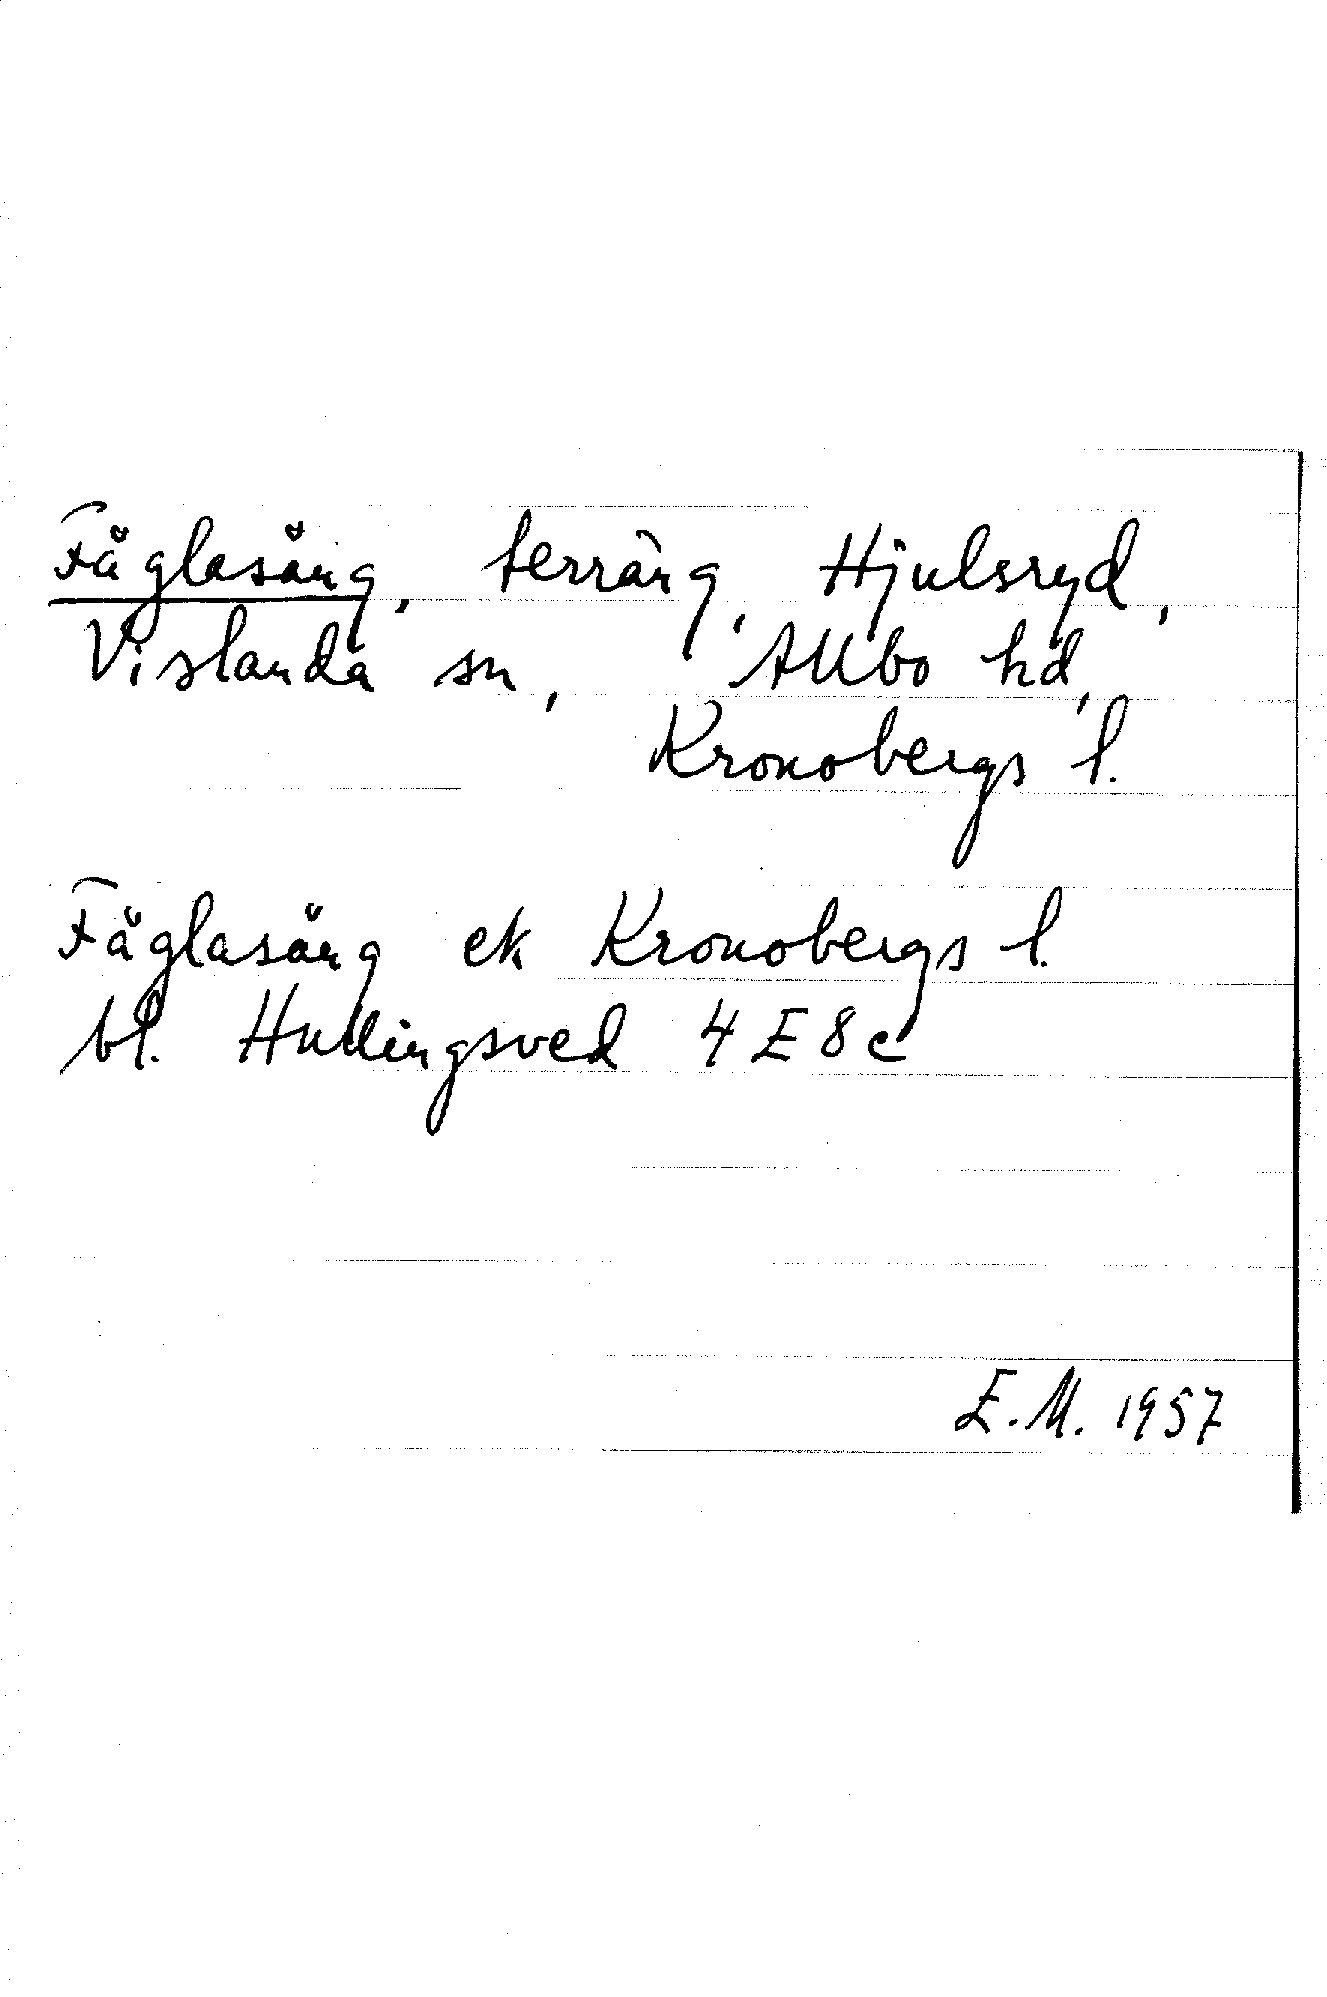 Fåglasång, terräng, Hjulsryd,
Vislanda sn, Allbo hd,
Kronobergs l.
Fåglasång ek Kronobergs l.
bl. Hullingsved 4E8c
E.M. 1957